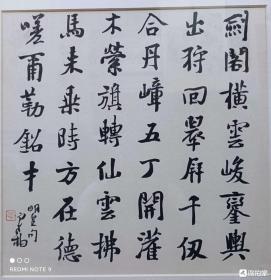 劍閣橫雲峻鑾輿
出狩回翠屏千仞
合丹嶂五丁開灌
木縈旗轉仙雲拂
馬來乘時方在德
嗟爾勒銘才
明皇句
REDMI NOTE 9